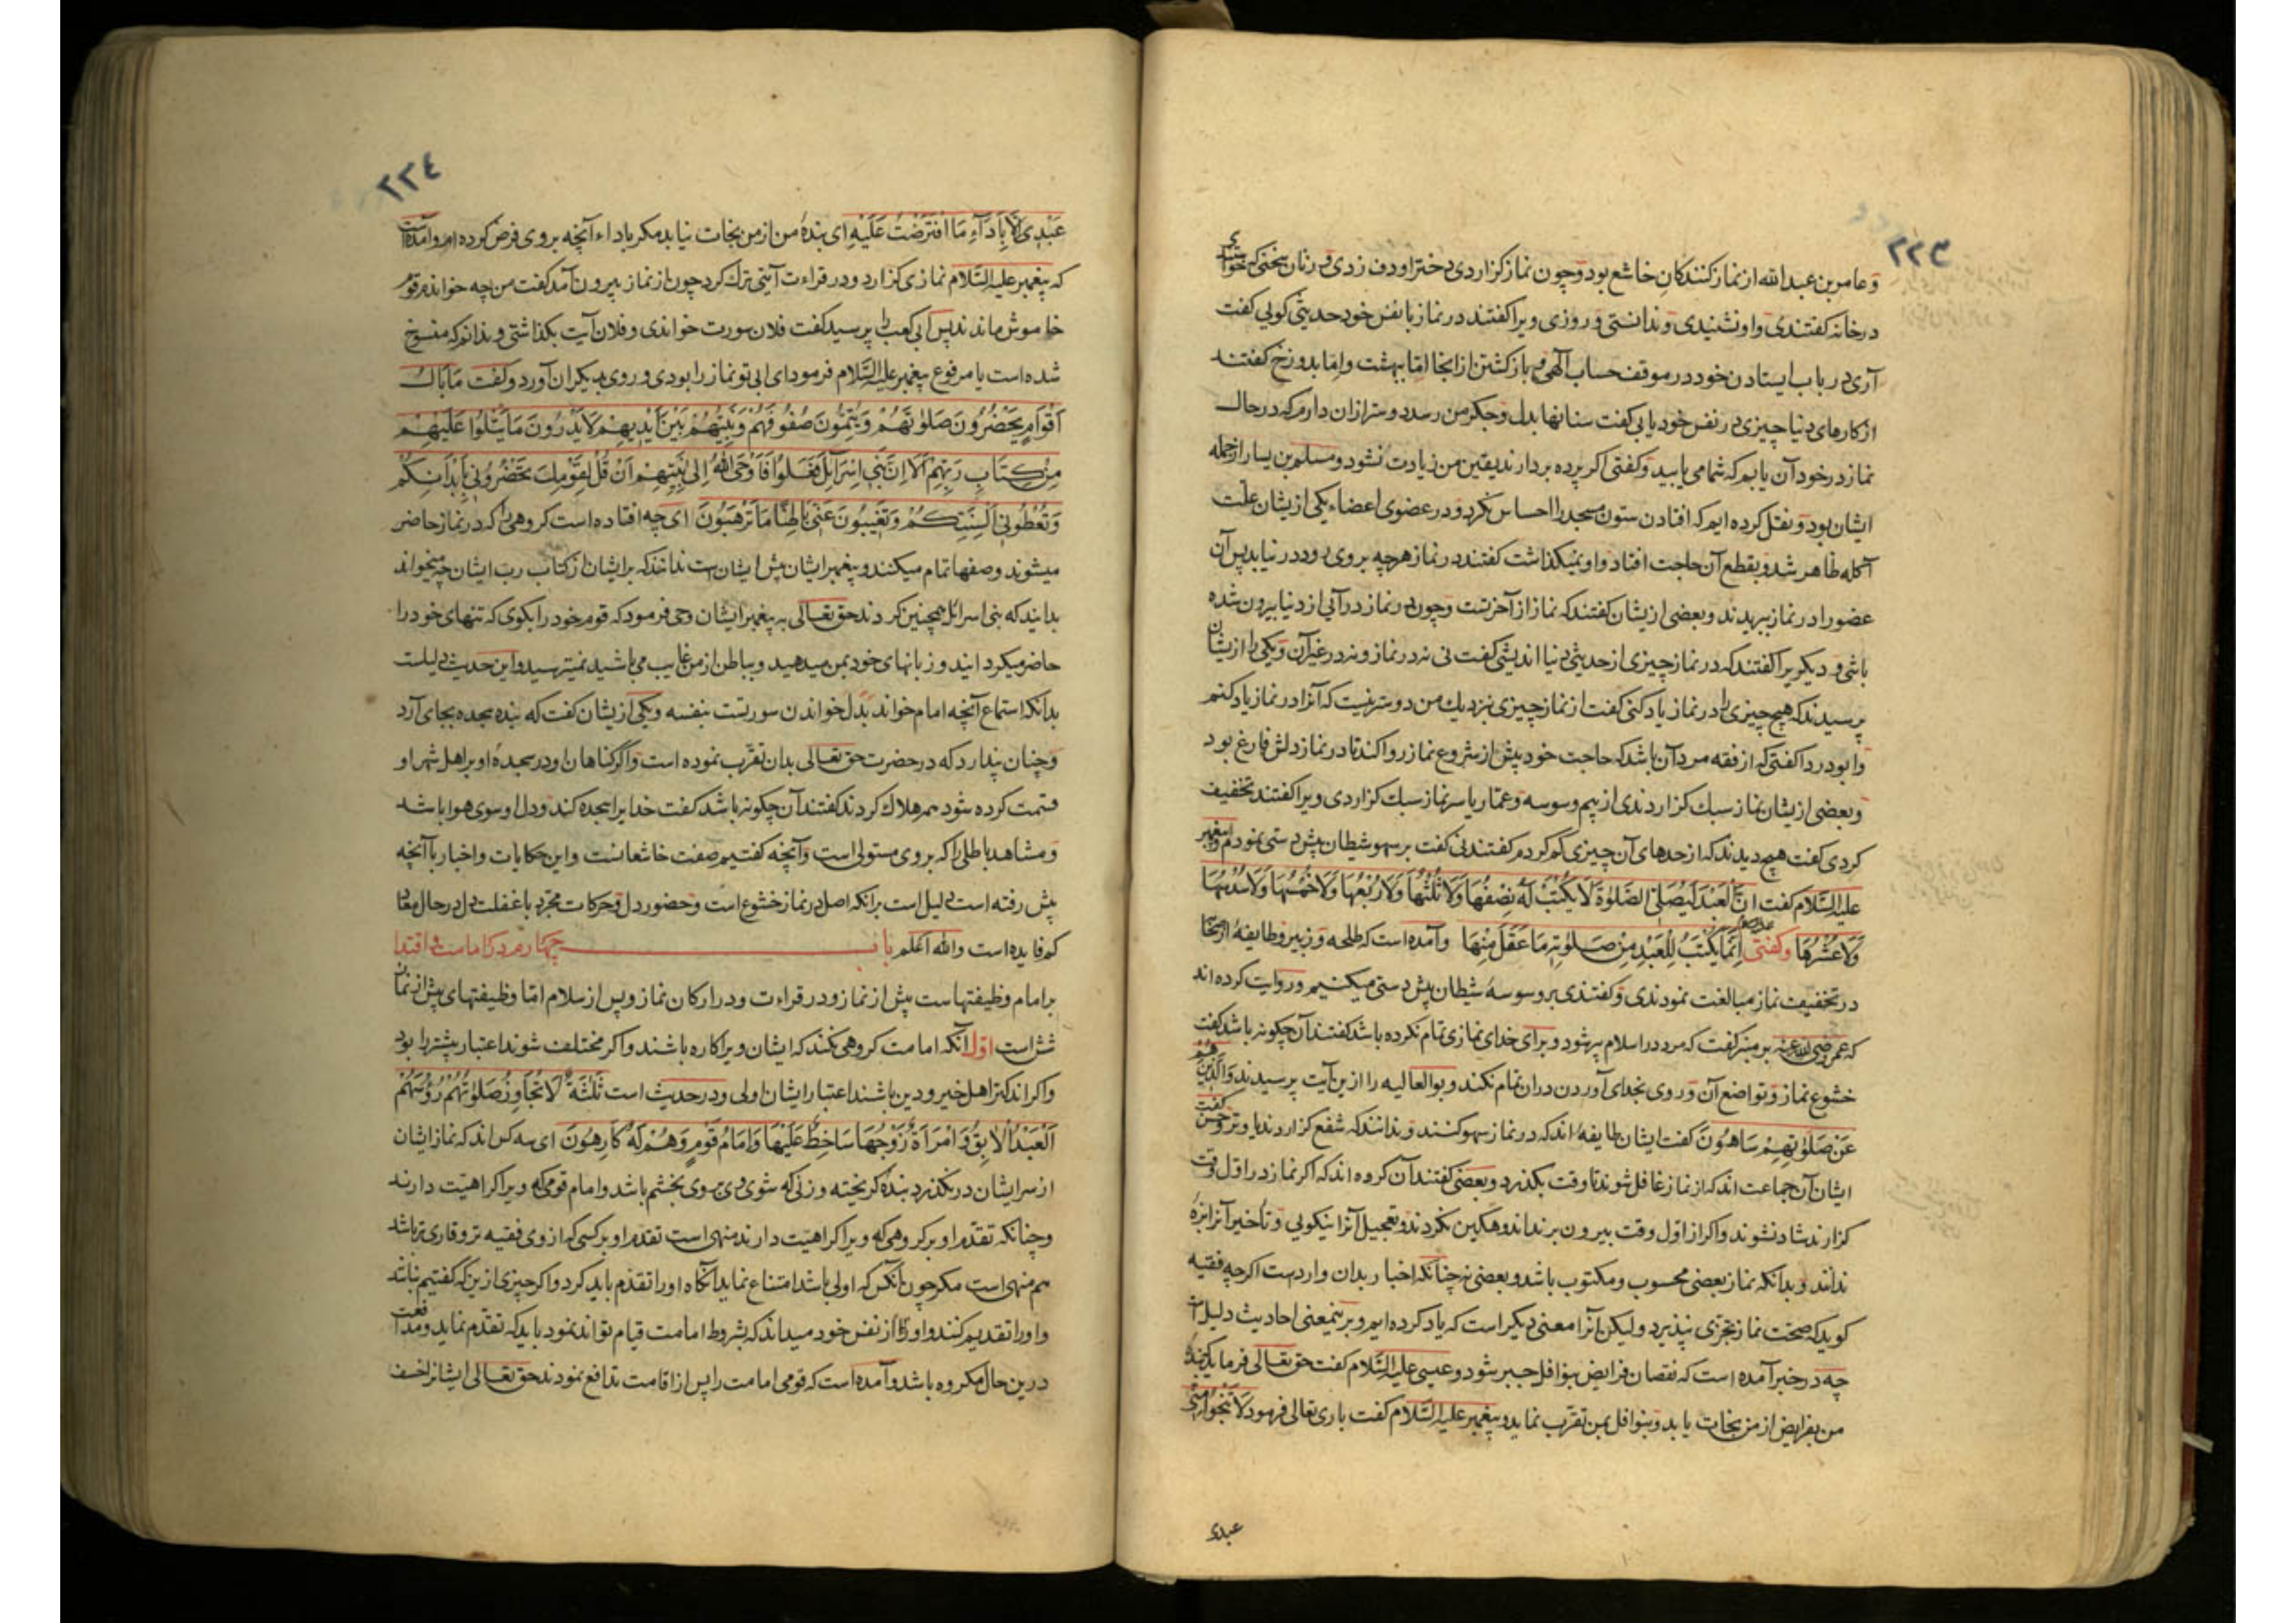 ٢٢٣
و عامر بن عبد الله از نماز کنندکان خاشع بود و چون نماز کزاردی دختر او دف زدی و زنان سخنی که خواستندی
در خانه کفتندی و او نشنیدی و ندانستی و روزی ویرا کفتند در نماز با نفس خود حدیثی کویی کفت
آری در باب ایستادن خود در موقف حساب آلهی و بازکشتن از انجا اما ببهشت و اما بدوزخ کفتند
از کارهای دنیا چیزی در نفس خود یابی کفت سنانها بدل و جکر من رسد دوستر ازان دارم که در حال
نماز در خود آن یابم که شما می یابید و کفتی اکر پرده بردارند یقین من زیادت نشود و مسلم بن یسار از جمله
ایشان بود و نقل کرده ایم که افتادن ستون مسجد را احساس نکرد و در عضوی اعضاء یکی از یشان علت
آکله ظاهر شد و بقطع آن حاجت افتاد و او نمیکذاشت کفتند در نماز هرچه بر وی رود در نیابد پس آن
عضو را در نماز ببریدند و بعضی از یشان کفتند که نماز از آخرتست و چون در نماز در آئی از دنیا بیرون شده
باشی و دیکر یرا کفتند که در نماز چیزی از حدیثی دنیا اندیشی کفت نی نه در نماز و نه در غیر آن و یکی را از یشان
پرسیدند که هیچ چیزی را در نماز یاد کنی کفت از نماز چیزی نزدیک من دوستر نیست که آنرا در نماز یاد کنم
و ابو دردا کفتی که از فقه مرد آن باشد که حاجت خود پیش از شروع نماز روا کند تا در نماز دلش فارغ بود
و بعضی از یشان نماز سبک کزاردندی از بیم وسوسه و عمار یاسر نماز سبک کزاردی ویرا کفتند تخفیف
کردی کفت هیچ دیدند که از حدهای آن چیزی کم کردم کفتند نی کفت بر سهو شیطان پیش دستی نمودم و پیغمبر
علیه السلام کفت اِنَّ الْعَبْدَ لَیُصَلِّی الصَّلٰوةَ لَا یُکْتَبُ لَهُ نِصْفُهَا وَلَا ثُلُثُهَا وَلَا رُبْعُهَا وَلَا خُمْسُهَا وَلَا سُدْسُهَا
وَلَا عُشْرُهَا و کفتی اِنَّمَا یُکْتَبُ لِلْعَبْدِ مِنْ صَلٰوتِهِ مَا عَقَلَ مِنْهَا و آمده است که طلحه و زبیر و طایفهٔ از صحابه
در تخفیف نماز مبالغت نمودندی و کفتندی بر وسوسهٔ شیطان پیش دستی میکنیم و روایت کرده اند
که عمر رضی الله عنه بر منبر کفت که مرد در اسلام پیر شود و برای خدای نمازی تمام نکرده باشد کفتند آن چکونه باشد کفت
خشوع نماز و تواضع آن و روی بخدای آوردن دران تمام نکند و بو العالیه را ازین آیت پرسیدند وَالَّذِینَ هُمْ
عَنْ صَلٰوتِهِمْ سَاهُونَ کفت ایشان طایفهٔ اند که در نماز سهو کنند و ندانند که شفع کزاردند یا وتر و حسن کفت
ایشان آن جماعت اند که از نماز غافل شوند تا وقت بکذرد و بعضی کفتند آن کروه اند که اکر نماز در اول وقت
کزارند شاد نشوند و اکر از اول وقت بیرون برند اندوهکین نکردند و تعجیل آنرا نیکویی و تأخیر آنرا بزهٔ
ندانند و بدانکه نماز بعضی محسوب و مکتوب باشد و بعضی نه چنانکه اخبار بدان واردست اکرچه فقیه
کوید که صحت نماز تجزی نپذیرد ولیکن آنرا معنی دیکر است که یاد کرده ایم و بر ینمعنی احادیث دلیل است
چه در خبر آمده است که نقصان فرایض بنوافل جبر شود و عیسی علیه السلام کفت حق تعالی فرماید که بندهٔ
من بفرایض از من نجات یابد و بنوافل بمن تقرب نماید و پیغمبر علیه السلام کفت باری تعالی فرمود لَا یَنْجُوا مِنِّی
عبدی
٢٢٤
عَبْدِی اِلَّا بِاَدَآءِ مَا افْتَرَضْتُ عَلَیْهِ ای بندهٔ من از من نجات نیابد مکر باداء آنچه بر وی فرض کرده ام و آمده است
که پیغمبر علیه السلام نمازی کزارد و در قراءت آیتی ترک کرد چون از نماز بیرون آمد کفت من چه خواندم قوم
خاموش ماندند پس ابی کعب را پرسید کفت فلان سورت خواندی و فلان آیت بکذاشتی و ندانم که منسوخ
شده است یا مرفوع پیغمبر علیه السلام فرمود ای ابی تو نماز را بودی و روی بدیکران آورد و کفت مَا بَالُ
اَقْوَامٍ یَحْضُرُونَ صَلٰوتَهُمْ وَیُتِمُّونَ صُفُوفَهُمْ وَنَبِیُّهُمْ بَیْنَ اَیْدِیهِمْ لَا یَدْرُونَ مَا یَتْلُوا عَلَیْهِمْ
مِنْ کِتَابِ رَبِّهِمْ اَلَا اِنَّ بَنِی اِسْرَآئِلَ فَعَلُوا فَاَوْحَی اللّٰهُ اِلٰی نَبِیِّهِمْ اَنْ قُلْ لِقَوْمِکَ تَحْضُرُونِی بِاَبْدَانِکُمْ
وَتُعْطُونِی اَلْسِنَتَکُمْ وَتَغِیبُونَ عَنِّی بَاطِنًا مَا تَرْهَبُونَ ای چه افتاده است کروهی را که در نماز حاضر
میشوند و صفها تمام میکنند و پیغمبر ایشان پیش ایشان است ندانند که بر ایشان از کتاب رب ایشان چه میخواند
بدانید که بنی اسرائل همچنین کردند حق تعالی به پیغمبر ایشان وحی فرمود که قوم خود را بکوی که تنهای خود را
حاضر میکردانید و زبانهای خود بمن میدهید و بباطن از من غایب می باشید نمیترسید و این حدیث دلیلست
بدانکه استماع آنچه امام خواند بدل خواندن سورتست بنفسه و یکی از یشان کفت که بنده سجده بجای آرد
و چنان پندارد که در حضرت حق تعالی بدان تقرب نموده است و اکر کناهان او در سجدهٔ او بر اهل شهر او
قسمت کرده شود همه هلاک کردند کفتند آن چکونه باشد کفت خدایرا سجده کند و دل او سوی هوا باشد
و مشاهد باطلی را که بر وی مستولی است و آنچه کفتیم صفت خاشعانست و این حکایات و اخبار با آنچه
پیش رفته است دلیل است برانکه اصل در نماز خشوع است و حضور دل و حرکات مجرد با غفلت دل در حال معاد
کم فایده است والله اعلم باب چهارم در امامت و اقتدا
بر امام وظیفتهاست پیش از نماز و در قراءت و در ارکان نماز و پس از سلام اما وظیفتهای پیش از نماز
شش است اول آنکه امامت کروهی نکند که ایشان ویرا کاره باشند و اکر مختلف شوند اعتبار بیشتر را بود
و اکر اندکتر اهل خیر و دین باشند اعتبار ایشان اولی و در حدیث است ثَلٰثَةٌ لَا تُجَاوِزُ صَلٰوتُهُمْ رُؤُسَهُمْ
اَلْعَبْدُ الْاٰبِقُ وَامْرَاَةٌ زَوْجُهَا سَاخِطٌ عَلَیْهَا وَاِمَامُ قَوْمٍ وَهُمْ لَهُ کَارِهُونَ ای سه کس اند که نماز ایشان
از سر ایشان در نکذرد بندهٔ کریخته و زنی که شوی وی بر وی بخشم باشد و امام قومی که ویرا کراهیت دارند
و چنانکه تقدم او بر کروهی که ویرا کراهیت دارند منهی است تقدم او بر کسی که از وی فقیه تر و قاری تر باشد
هم منهی است مکر چون آنکس که اولی باشد امتناع نماید آنکاه او را تقدم باید کرد و اکر چیزی ازین که کفتیم نباشد
و او را تقدیم کنند و او را از نفس خود میداند که بشروط امامت قیام تواند نمود باید که تقدم نماید و مدافعت
درین حال مکروه باشد و آمده است که قومی امامت را پس از اقامت تدافع نمودند حق تعالی ایشانرا خسف